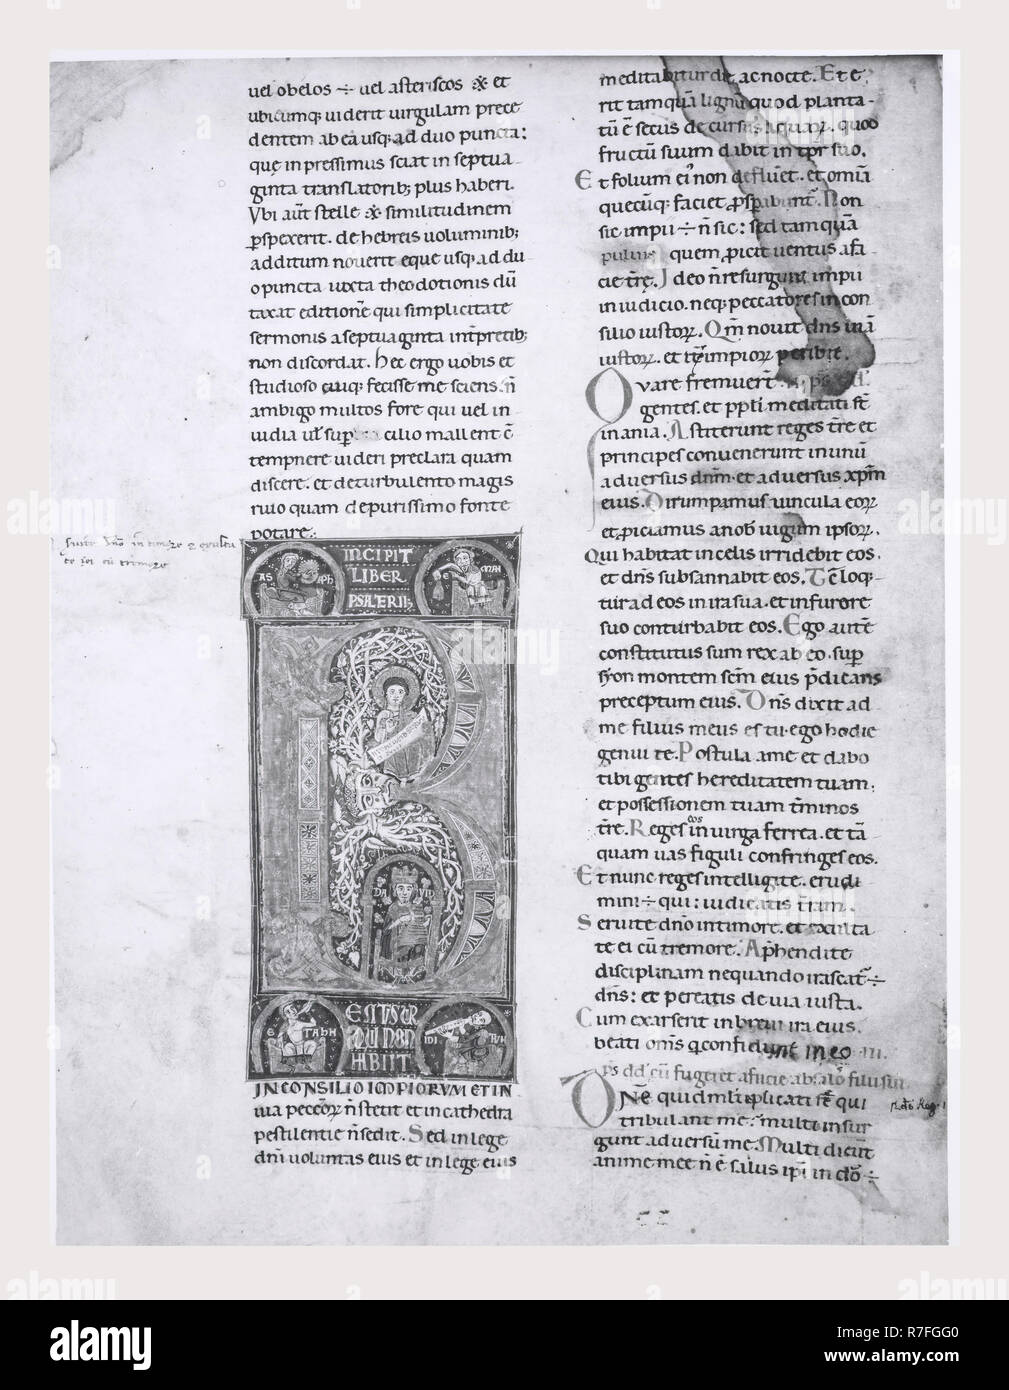 uel obelos ÷ uel asteriscos ※ et
ubicumq; uiderit uirgulam prece
dentem ab ea usq; ad duo puncta:
que inpressimus sciat in septua
ginta translatorib; plus haberi.
Vbi aut̄ stelle ※ similitudinem
ꝑspexerit. de hebreis uoluminib;
additum nouerit eque usq; ad du
o puncta iuxta theodotionis dū
taxat editionē qui simplicitate
sermonis a septuaginta int̄pretib;
non discordat. Hec ergo uobis et
studioso cuiq; fecisse me sciens. n̄
ambigo multos fore qui uel in
uidia ul̄ sup cilio mallent c̄
tempnere uideri preclara quam
discere. et deturbulento magis
riuo quam de purissimo fonte
potare.
INCIPIT
LIBER
PSALTERII
AS APH
E MAN
DA VID
E TAHN
IDI TVN
EATUS UIR
QUI NON
HABIIT
IN CONSILIO IMPIORVM ET IN
uia peccōꝝ n̄ stetit et in cathedra
pestilentie n̄ sedit. Sed in lege
dn̄i uoluntas eius et in lege eius
meditabitur die ac nocte. Et e
rit tamquā lignū quod planta-
tū ē secus decursus aquaꝝ. quod
fructū suum dabit in tp̄r suo.
Et folium ei' non defluet. et om̄ia
quecūq; faciet ꝓspabunt̄. Non
sic impii ÷ n̄ sic: sed tamquā
puluis quem ꝓicit uentus a fa
cie tr̄e. Ideo n̄ resurgunt impii
in iudicio. neq; peccatores in con
silio iustoꝝ. Qm̄ nouit dn̄s uiā
iustoꝝ. et it̄ impioꝝ peribit.
Quare fremuer̄t
gentes. et ppl̄i meditati st̄
inania. Astiterunt reges tr̄e et
principes conuenerunt in unū
aduersus dn̄m. et aduersus xp̄m
eius. Dirumpamus uincula eoꝝ
et ꝓiciamus a nob̄ iugum ipsoꝝ.
Qui habitat in celis irridebit eos.
et dn̄s subsannabit eos. Tc̄ loq-
tur ad eos in ira sua. et in furore
suo conturbabit eos. Ego aut̄e
constitutus sum rex ab eo. sup
syon montem scm̄ eius p̄dicans
preceptum eius. Dn̄s dixit ad
me filius meus es tu. ego hodie
genui te. Postula a me et dabo
tibi gentes hereditatem tuam.
et possessionem tuam t̄minos
tr̄e. Reges eos in uirga ferrea. et tā
quam uas figuli confringes eos.
Et nunc reges intelligite. erudi
mini ÷ qui: iudicatis t̄ram.
Seruite dn̄o in timore. et exulta
te ei cū tremore. Aphendite
disciplinam nequando irascat̄ ÷
dn̄s: et pereatis de uia iusta.
Cum exarserit in breui ira eius.
beati om̄s q confidunt in eo
Ps dd̄ cū fugeret a facie absalō filii sui
Dn̄e quid ml̄tiplicati st̄ qui
tribulant me: multi insur
gunt aduersū me. Multi dicūt
anime mee n̄ ē salus ipi in dō ÷
alamy
Image ID: R7FGG0
www.alamy.com